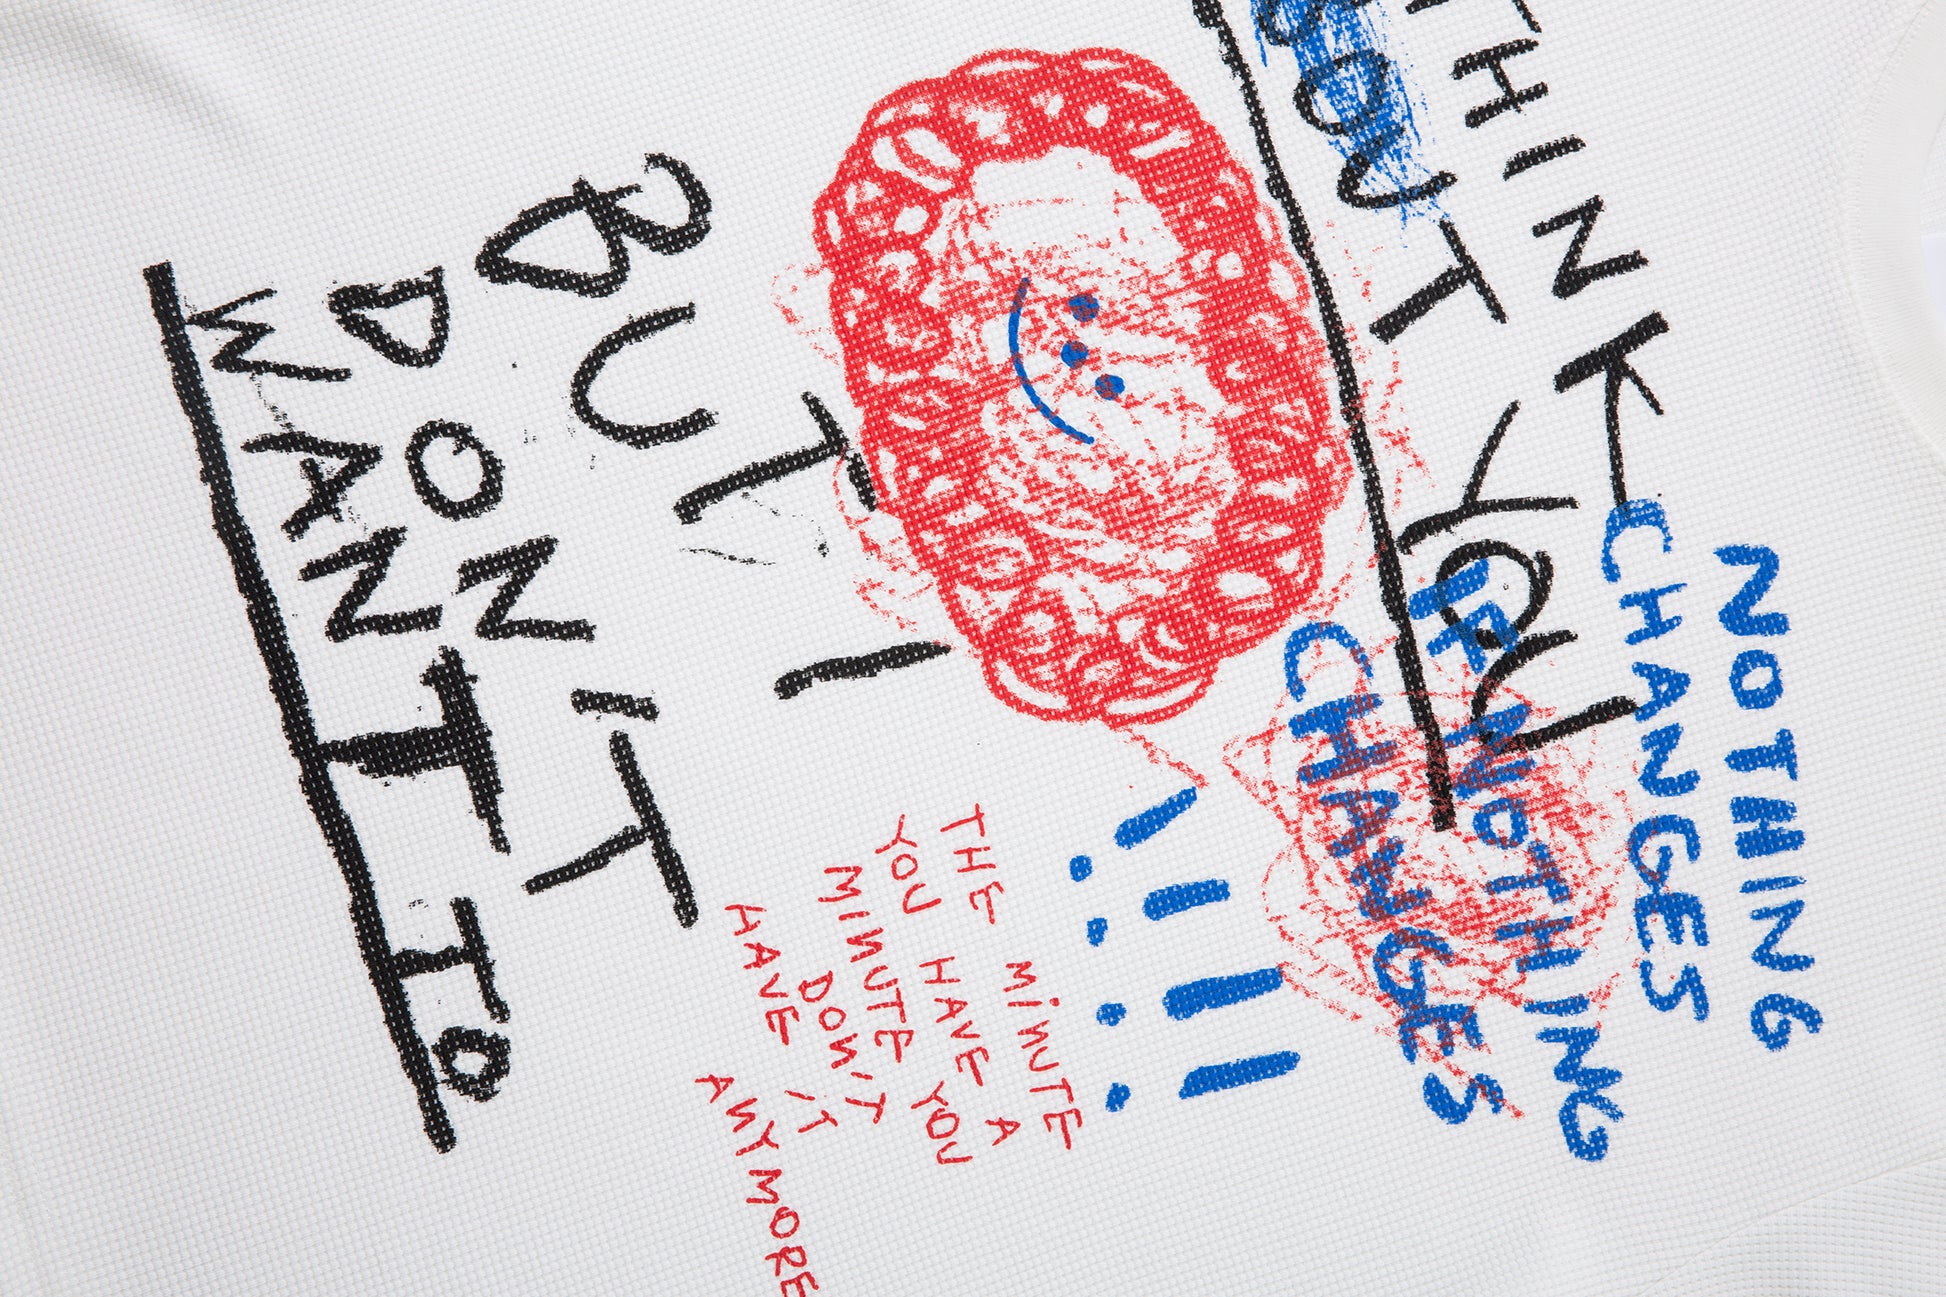 THINK
BOUT YOU
NOTHING
CHANGES
IF NOTHING
CHANGES
!!!!
BUT I
DON'T
WANT TO
THE MINUTE
YOU HAVE A
MINUTE YOU
DON'T
HAVE IT
ANYMORE